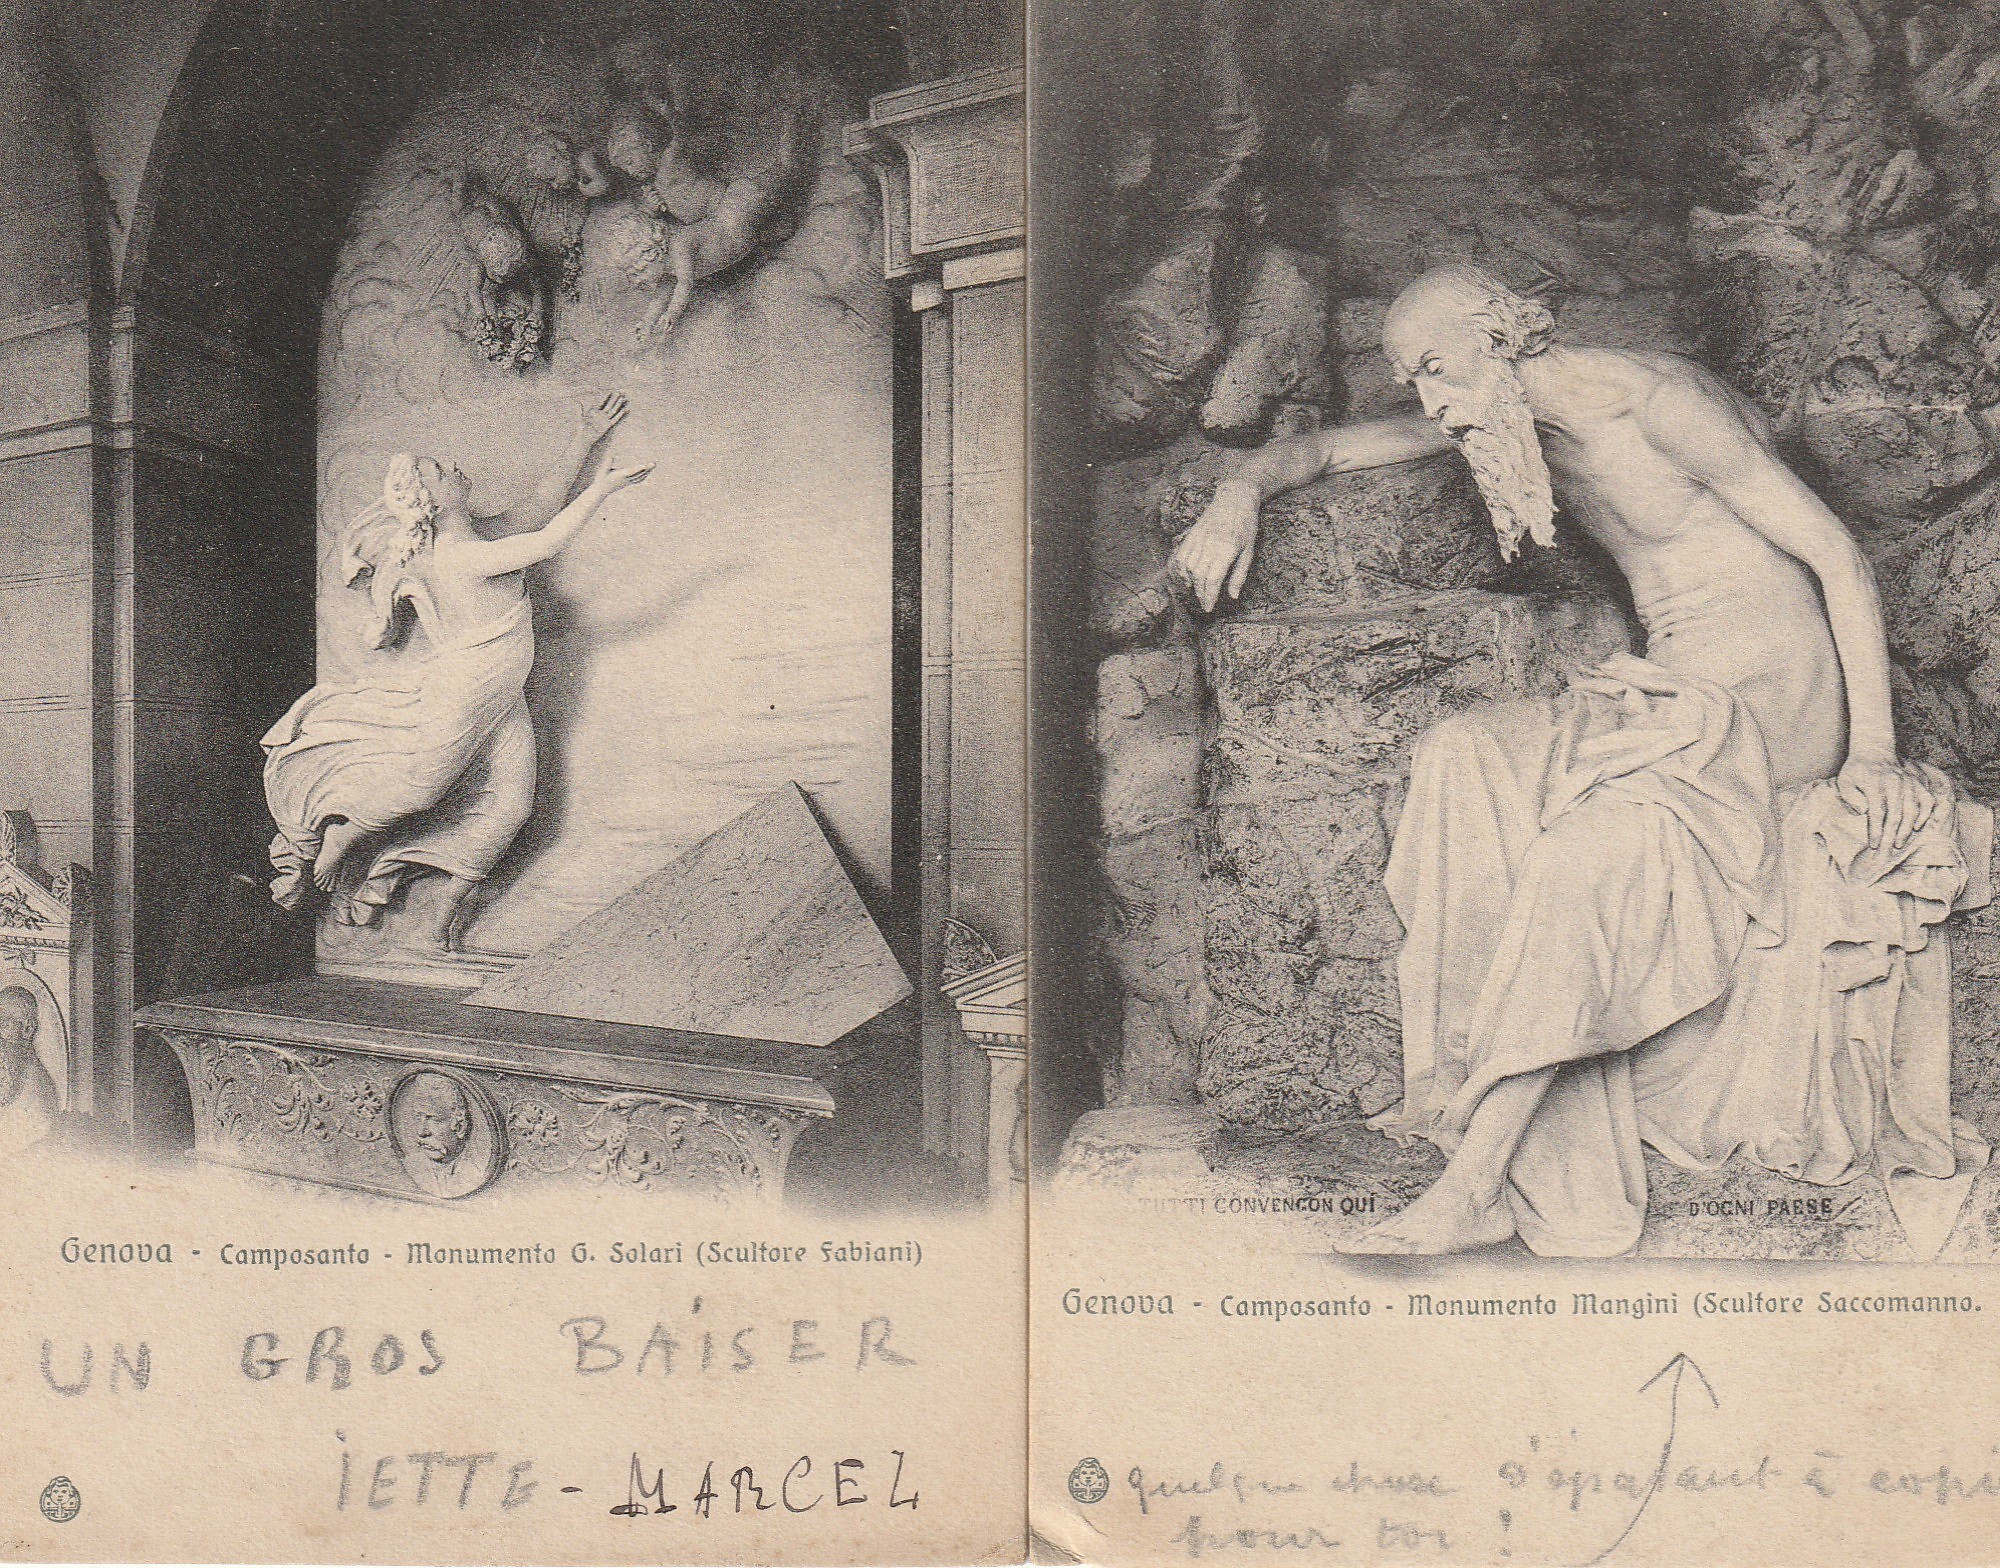 Genova - Camposanto - Monumento G. Solari (Scultore Fabiani)
UN GROS BAISER
IETTE - MARCEL
TUTTI CONVENGON QUI D'OGNI PAESE
Genova - Camposanto - Monumento Mangini (Scultore Saccomanno.
quelque chose d'épatant à copi
pour toi !